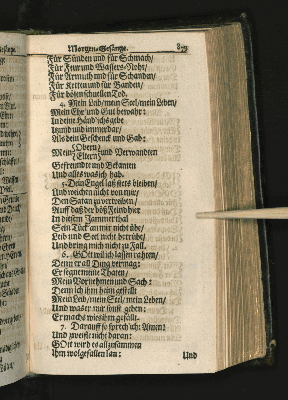 Morgen-Gesänge.
Für Sünden und für Schmach/
Für Feur und Wassers-Noht/
Für Armuth und für Schanden/
Für Ketten und für Banden/
Für bösen schnellen Tod.
4. Mein Leib/ mein Seel/ mein Leben/
Mein Ehr und Gut bewahr:
In deine Händ ichs gebe
Itzund und immerdar/
Als dein Geschenck und Gab:
Mein Obern/ Eltern und Verwandten
Gefreundte und Bekanten
Und alles was ich hab.
5. Dein Engel laß stets bleiben/
Und weichen nicht von mir/
Den Satan zu vertreiben/
Auff daß der böß Feind hier
In diesem Jammerthal
Sein Tück an mir nicht übe/
Leib und Seel nicht betrübe/
Und bring mich nicht zu Fall.
6. GOtt will ich lassen rahten/
Denn er all Ding vermag:
Er segne meine Thaten/
Mein Vornehmen und Sach:
Denn ich ihm heim gestellt
Mein Leib/ mein Seel/ mein Leben/
Und was er mir sonst geben.
Er machs wies ihm gefällt.
7. Darauff so sprech ich: Amen:
Und zweifle nicht daran:
GOtt wird es allzusammen
Ihm wolgefallen lan:
Und